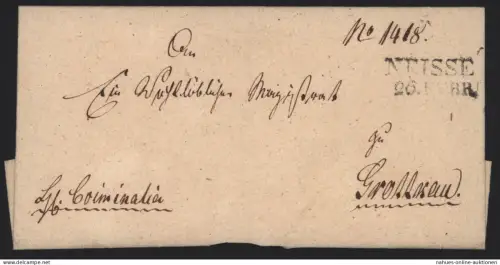 No 1418.
An
NEISSE
26. FEBR.
Ein Wohllöblicher Magistrat
zu
Grottkau.
Criminalia
nahues-online-auktionen